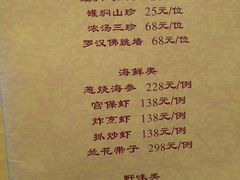 罐焖山珍 25元/位
浓汤三珍 68元/位
罗汉佛跳墙 68元/位
海鲜类
葱烧海参 228元/例
宫保虾 138元/例
炸烹虾 138元/例
抓炒虾 138元/例
兰花带子 298元/例
野味类